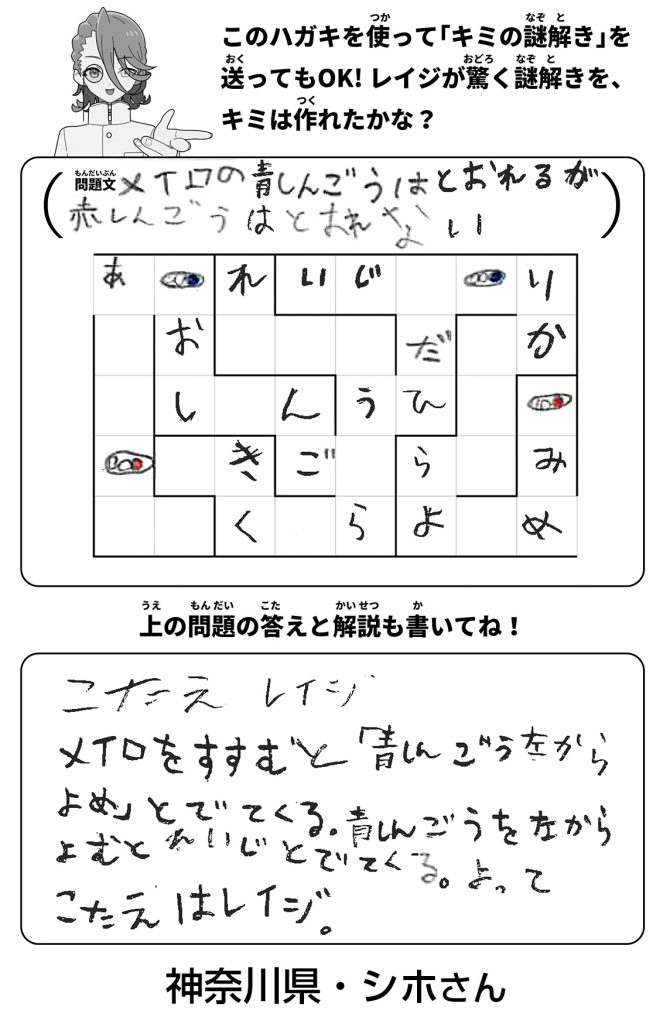 このハガキを使って「キミの謎解き」を
送ってもOK! レイジが驚く謎解きを、
キミは作れたかな？
問題文 メイロの青しんごうはとおれるが
赤しんごうはとおれない
あ れ い じ り
お だ か
し ん う ひ
き ご ら み
く ら よ め
上の問題の答えと解説も書いてね！
こたえ レイジ
メイロをすすむと「青しんごう左から
よめ」とでてくる。青しんごうを左から
よむと れいじ とでてくる。よって
こたえはレイジ。
神奈川県・シホさん